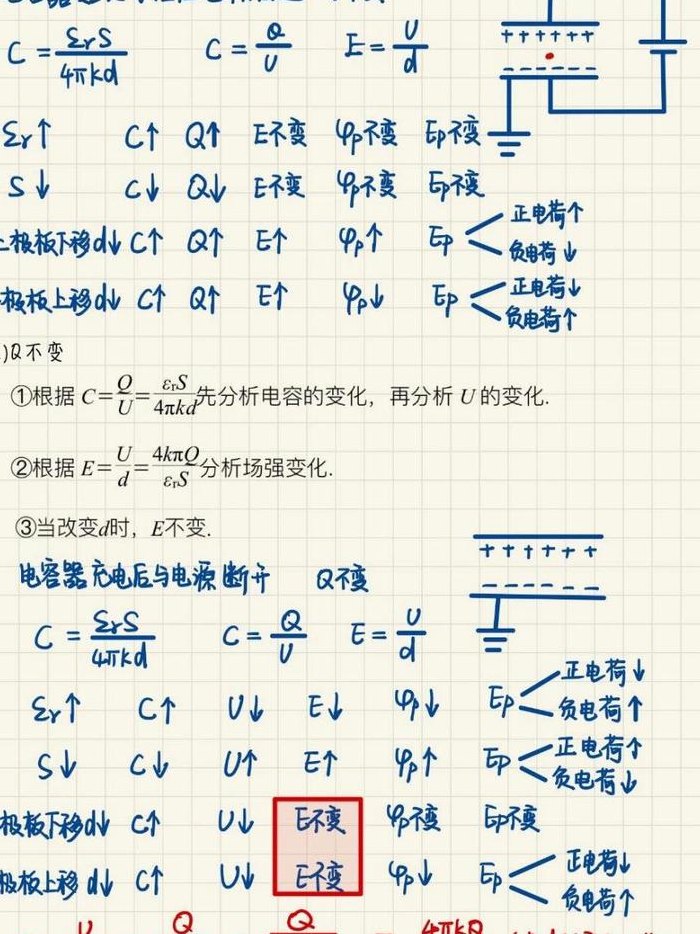 C = εrS/4πkd C = Q/U E = U/d
+ + + + + +
εr↑ C↑ Q↑ E不变 φp不变 Ep不变
S↓ C↓ Q↓ E不变 φp不变 Ep不变
极板下移d↓ C↑ Q↑ E↑ φp↑ Ep 正电荷↑ 负电荷↓
极板上移d↓ C↑ Q↑ E↑ φp↓ Ep 正电荷↓ 负电荷↑
)Q不变
①根据 C=Q/U=εrS/4πkd先分析电容的变化，再分析 U 的变化.
②根据 E=U/d=4kπQ/εrS分析场强变化.
③当改变d时，E不变.
+ + + + + +
电容器充电后与电源断开 Q不变
C = εrS/4πkd C = Q/U E = U/d
εr↑ C↑ U↓ E↓ φp↓ Ep 正电荷↓ 负电荷↑
S↓ C↓ U↑ E↑ φp↑ Ep 正电荷↑ 负电荷↓
极板下移d↓ C↑ U↓ E不变 φp不变 Ep不变
极板上移d↓ C↑ U↓ E不变 φp↓ Ep 正电荷↓ 负电荷↑
U Q Q 4πkQ